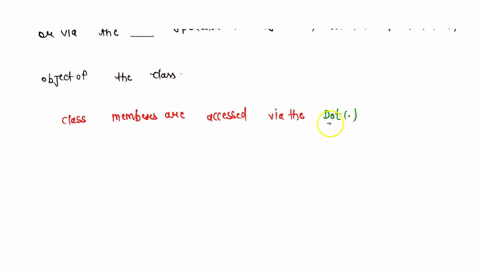 or via the ___
object of the class.
class members are accessed via the Dot(.)